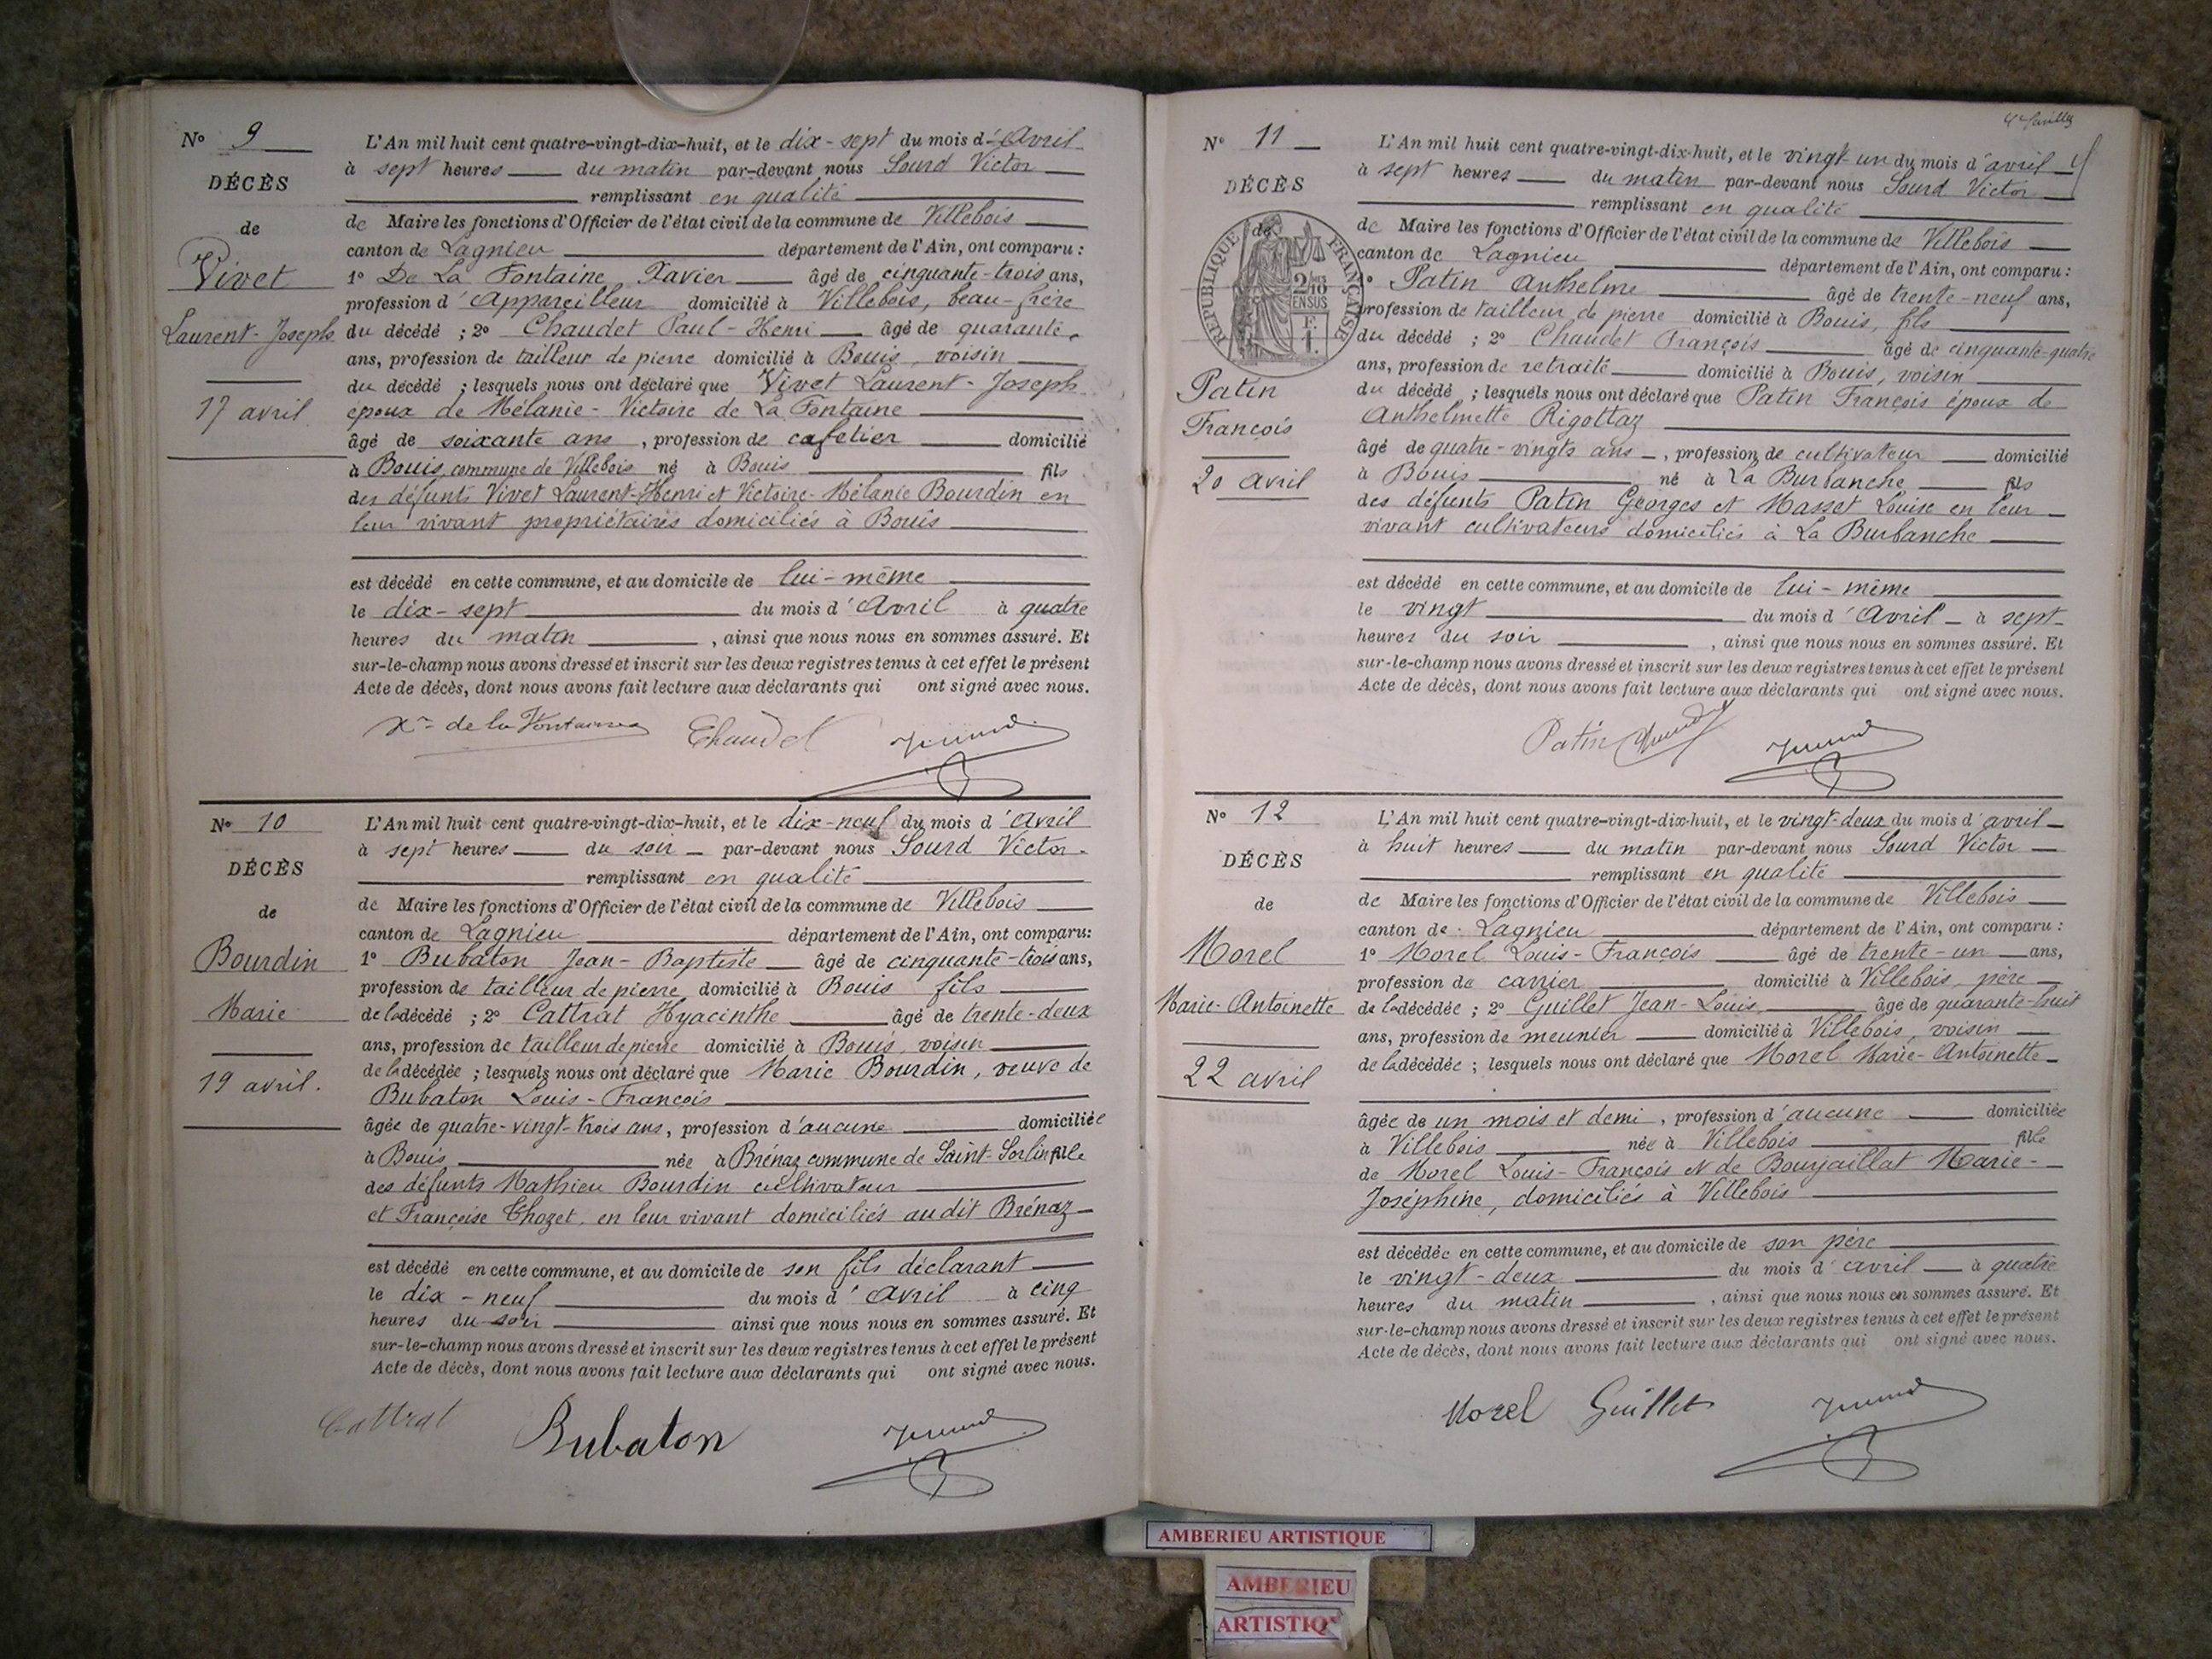 N° 9
DÉCÈS
de
Vivet
Laurent-Joseph
17 avril
L'An mil huit cent quatre-vingt-dix-huit, et le dix-sept du mois d'Avril
à sept heures du matin par-devant nous Sourd Victor
remplissant en qualité
de Maire les fonctions d'Officier de l'état civil de la commune de Villebois
canton de Lagnieu département de l'Ain, ont comparu :
1° De La Fontaine Xavier âgé de cinquante-trois ans,
profession d'Appareilleur domicilié à Villebois, beau-frère
du décédé ; 2° Chaudet Paul-Henri âgé de quarante
ans, profession de tailleur de pierre domicilié à Bouis, voisin
du décédé ; lesquels nous ont déclaré que Vivet Laurent-Joseph
époux de Mélanie-Victoire de La Fontaine
âgé de soixante ans, profession de cafetier domicilié
à Bouis, commune de Villebois né à Bouis fils
des défunts Vivet Laurent-Henri et Victoire-Mélanie Bourdin en
leur vivant propriétaires domiciliés à Bouis
est décédé en cette commune, et au domicile de lui-même
le dix-sept du mois d'Avril à quatre
heures du matin, ainsi que nous nous en sommes assuré. Et
sur-le-champ nous avons dressé et inscrit sur les deux registres tenus à cet effet le présent
Acte de décès, dont nous avons fait lecture aux déclarants qui ont signé avec nous.
Xer de la Fontaine Chaudet
N° 10
DÉCÈS
de
Bourdin
Marie
19 avril.
L'An mil huit cent quatre-vingt-dix-huit, et le dix-neuf du mois d'Avril
à sept heures du soir par-devant nous Sourd Victor
remplissant en qualité
de Maire les fonctions d'Officier de l'état civil de la commune de Villebois
canton de Lagnieu département de l'Ain, ont comparu:
1° Bubaton Jean-Baptiste âgé de cinquante-trois ans,
profession de tailleur de pierre domicilié à Bouis fils
de la décédé ; 2° Cattrat Hyacinthe âgé de trente-deux
ans, profession de tailleur de pierre domicilié à Bouis, voisin
de la décédée ; lesquels nous ont déclaré que Marie Bourdin, veuve de
Bubaton Louis-François
âgée de quatre-vingt-trois ans, profession d'aucune domiciliée
à Bouis née à Brénaz commune de Saint-Sorlin fille
des défunts Mathieu Bourdin cultivateur
et Françoise Thozet, en leur vivant domiciliés audit Brénaz
est décédé en cette commune, et au domicile de son fils déclarant
le dix-neuf du mois d'Avril à cinq
heures du soir ainsi que nous nous en sommes assuré. Et
sur-le-champ nous avons dressé et inscrit sur les deux registres tenus à cet effet le présent
Acte de décès, dont nous avons fait lecture aux déclarants qui ont signé avec nous.
Cattrat Bubaton
N° 11
DÉCÈS
de
RÉPUBLIQUE FRANÇAISE
2/10
EN SUS
Patin
François
20 avril
L'An mil huit cent quatre-vingt-dix-huit, et le vingt-un du mois d'avril
à sept heures du matin par-devant nous Sourd Victor
remplissant en qualité
de Maire les fonctions d'Officier de l'état civil de la commune de Villebois
canton de Lagnieu département de l'Ain, ont comparu :
1° Patin Anthelme âgé de trente-neuf ans,
profession de tailleur de pierre domicilié à Bouis, fils
du décédé ; 2° Chaudet François âgé de cinquante-quatre
ans, profession de retraité domicilié à Bouis, voisin
du décédé ; lesquels nous ont déclaré que Patin François époux de
Anthelmette Rigottaz
âgé de quatre-vingts ans, profession de cultivateur domicilié
à Bouis né à La Burbanche fils
des défunts Patin Georges et Masset Louise en leur
vivant cultivateurs domiciliés à La Burbanche
est décédé en cette commune, et au domicile de lui-même
le vingt du mois d'Avril à sept
heures du soir, ainsi que nous nous en sommes assuré. Et
sur-le-champ nous avons dressé et inscrit sur les deux registres tenus à cet effet le présent
Acte de décès, dont nous avons fait lecture aux déclarants qui ont signé avec nous.
Patin
N° 12
DÉCÈS
de
Morel
Marie-Antoinette
22 avril
L'An mil huit cent quatre-vingt-dix-huit, et le vingt-deux du mois d'avril
à huit heures du matin par-devant nous Sourd Victor
remplissant en qualité
de Maire les fonctions d'Officier de l'état civil de la commune de Villebois
canton de Lagnieu département de l'Ain, ont comparu :
1° Morel Louis-François âgé de trente-un ans,
profession de carrier domicilié à Villebois, père
de la décédée ; 2° Guillet Jean-Louis âgé de quarante-huit
ans, profession de meunier domicilié à Villebois, voisin
de la décédée ; lesquels nous ont déclaré que Morel Marie-Antoinette
âgée de un mois et demi, profession d'aucune domiciliée
à Villebois née à Villebois fille
de Morel Louis-François et de Bourjaillat Marie-
Joséphine, domiciliés à Villebois
est décédée en cette commune, et au domicile de son père
le vingt-deux du mois d'avril à quatre
heures du matin, ainsi que nous nous en sommes assuré. Et
sur-le-champ nous avons dressé et inscrit sur les deux registres tenus à cet effet le présent
Acte de décès, dont nous avons fait lecture aux déclarants qui ont signé avec nous.
Morel Guillet
AMBERIEU ARTISTIQUE
AMBERIEU
ARTISTIQ